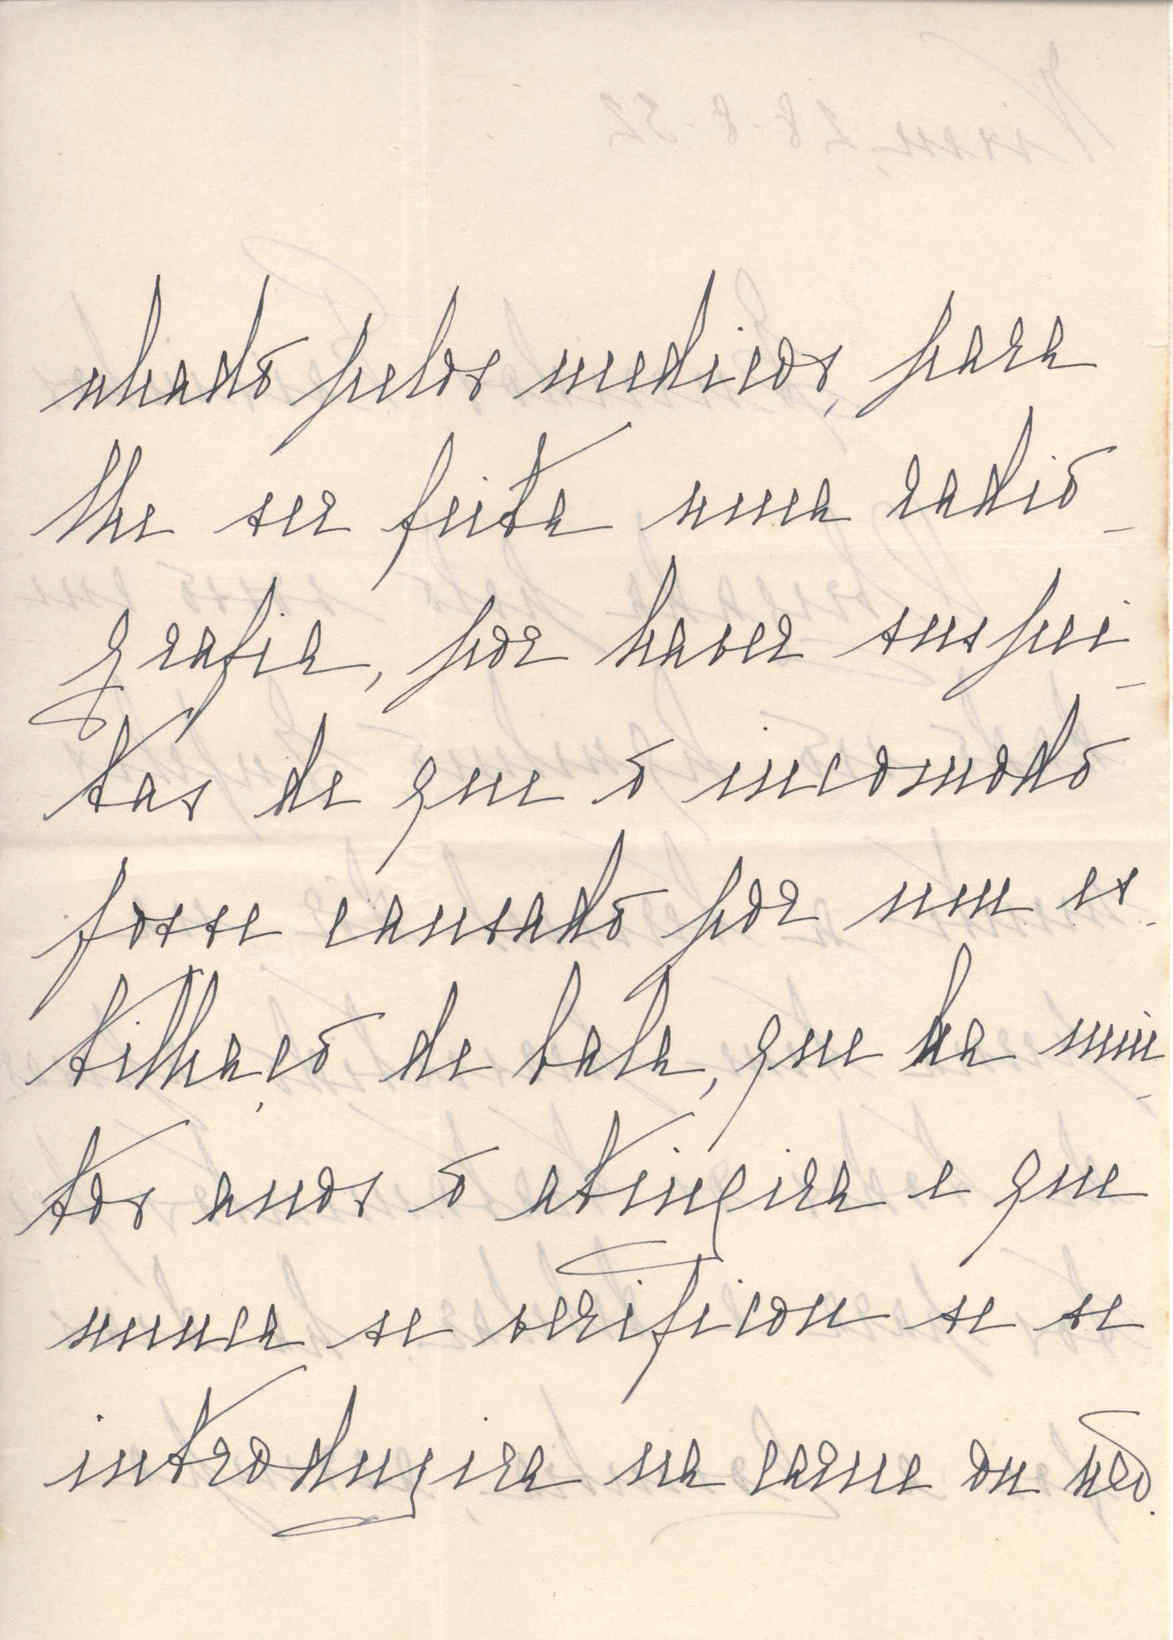 nhado pelos medicos, para
lhe ser feita uma radio-
grafia, por haver suspei-
tas de que o incomodo
fosse causado por um es-
tilhaço de bala, que ha mui-
tos anos o atingira e que
nunca se verificou se se
introduzira na carne ou não.